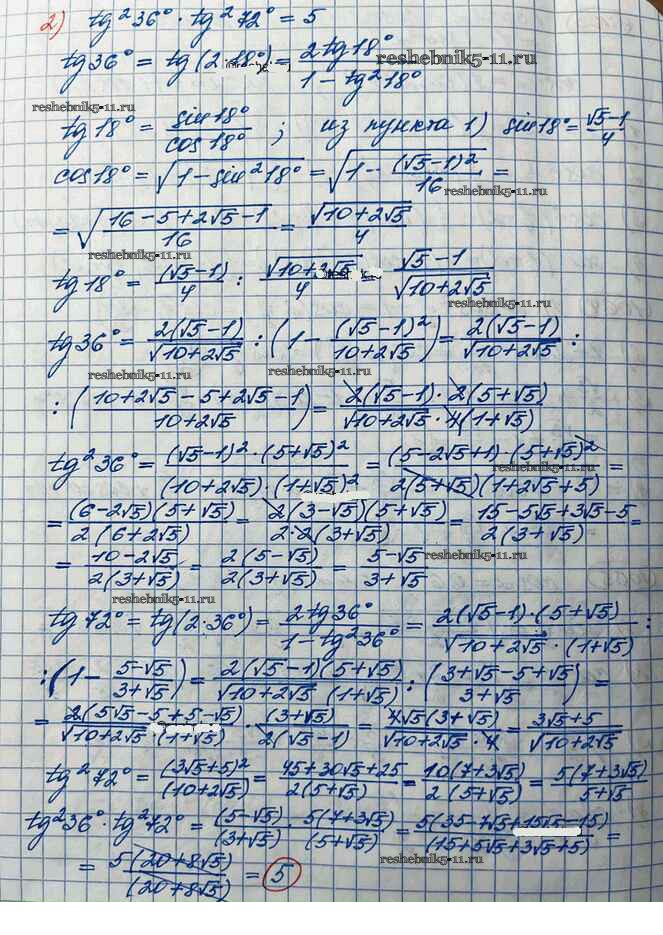 2) tg²36° · tg²72° = 5
tg36° = tg(2·18°) = 2tg18° / (1 - tg²18°)
reshebnik5-11.ru
reshebnik5-11.ru
tg18° = sin18° / cos18° ; из пункта 1) sin18° = (√5-1)/4
cos18° = √(1-sin²18°) = √(1 - (√5-1)²/16) =
reshebnik5-11.ru
= √((16-5+2√5-1)/16) = √(10+2√5)/4
reshebnik5-11.ru
tg18° = (√5-1)/4 : √(10+2√5)/4 (√5-1)/√(10+2√5)
reshebnik5-11.ru
tg36° = 2(√5-1)/√(10+2√5) : (1 - (√5-1)²/(10+2√5)) = 2(√5-1)/√(10+2√5) :
reshebnik5-11.ru
reshebnik5-11.ru
: ((10+2√5-5+2√5-1)/(10+2√5)) = 2(√5-1)·2(5+√5) / (√(10+2√5)·4(1+√5))
tg²36° = (√5-1)²·(5+√5)² / ((10+2√5)·(1+√5)²) = (5-2√5+1)·(5+√5)² / (2(5+√5)(1+2√5+5)) =
reshebnik5-11.ru
= (6-2√5)(5+√5) / (2(6+2√5)) = 2(3-√5)(5+√5) / (2·2(3+√5)) = (15-5√5+3√5-5) / (2(3+√5)) =
= (10-2√5) / (2(3+√5)) = 2(5-√5) / (2(3+√5)) = (5-√5)/(3+√5)
reshebnik5-11.ru
reshebnik5-11.ru
tg72° = tg(2·36°) = 2tg36° / (1-tg²36°) = 2(√5-1)·(5+√5) / (√(10+2√5)·(1+√5)) :
: (1 - (5-√5)/(3+√5)) = 2(√5-1)(5+√5) / (√(10+2√5)(1+√5)) : ((3+√5-5+√5)/(3+√5)) =
= 2(5√5-5+5-√5) / (√(10+2√5)·(1+√5)) · (3+√5) / (2(√5-1)) = 4√5(3+√5) / (√(10+2√5)·4) = (3√5+5)/√(10+2√5)
reshebnik5-11.ru
reshebnik5-11.ru
tg²72° = (3√5+5)²/(10+2√5) = (45+30√5+25)/(2(5+√5)) = 10(7+3√5)/(2(5+√5)) = 5(7+3√5)/(5+√5)
tg²36°·tg²72° = (5-√5)/(3+√5) · 5(7+3√5)/(5+√5) = 5(35-7√5+15√5-15)/(15+5√5+3√5+5) =
reshebnik5-11.ru
= 5(20+8√5)/(20+8√5) = 5